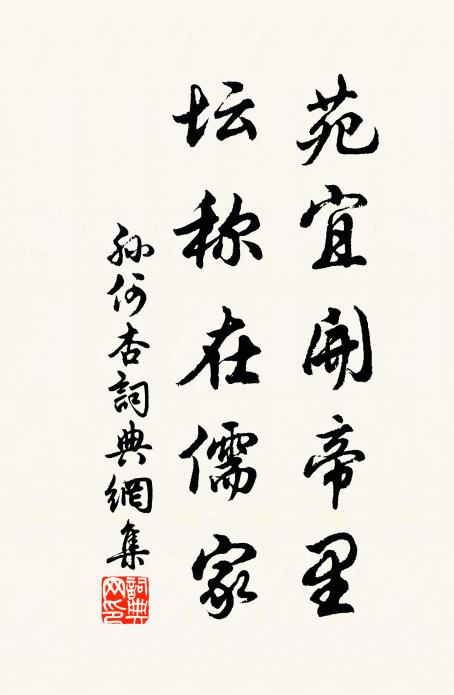 苑宜開帝里
坛称在儒家
孙何杏詞典網集
詞典網印